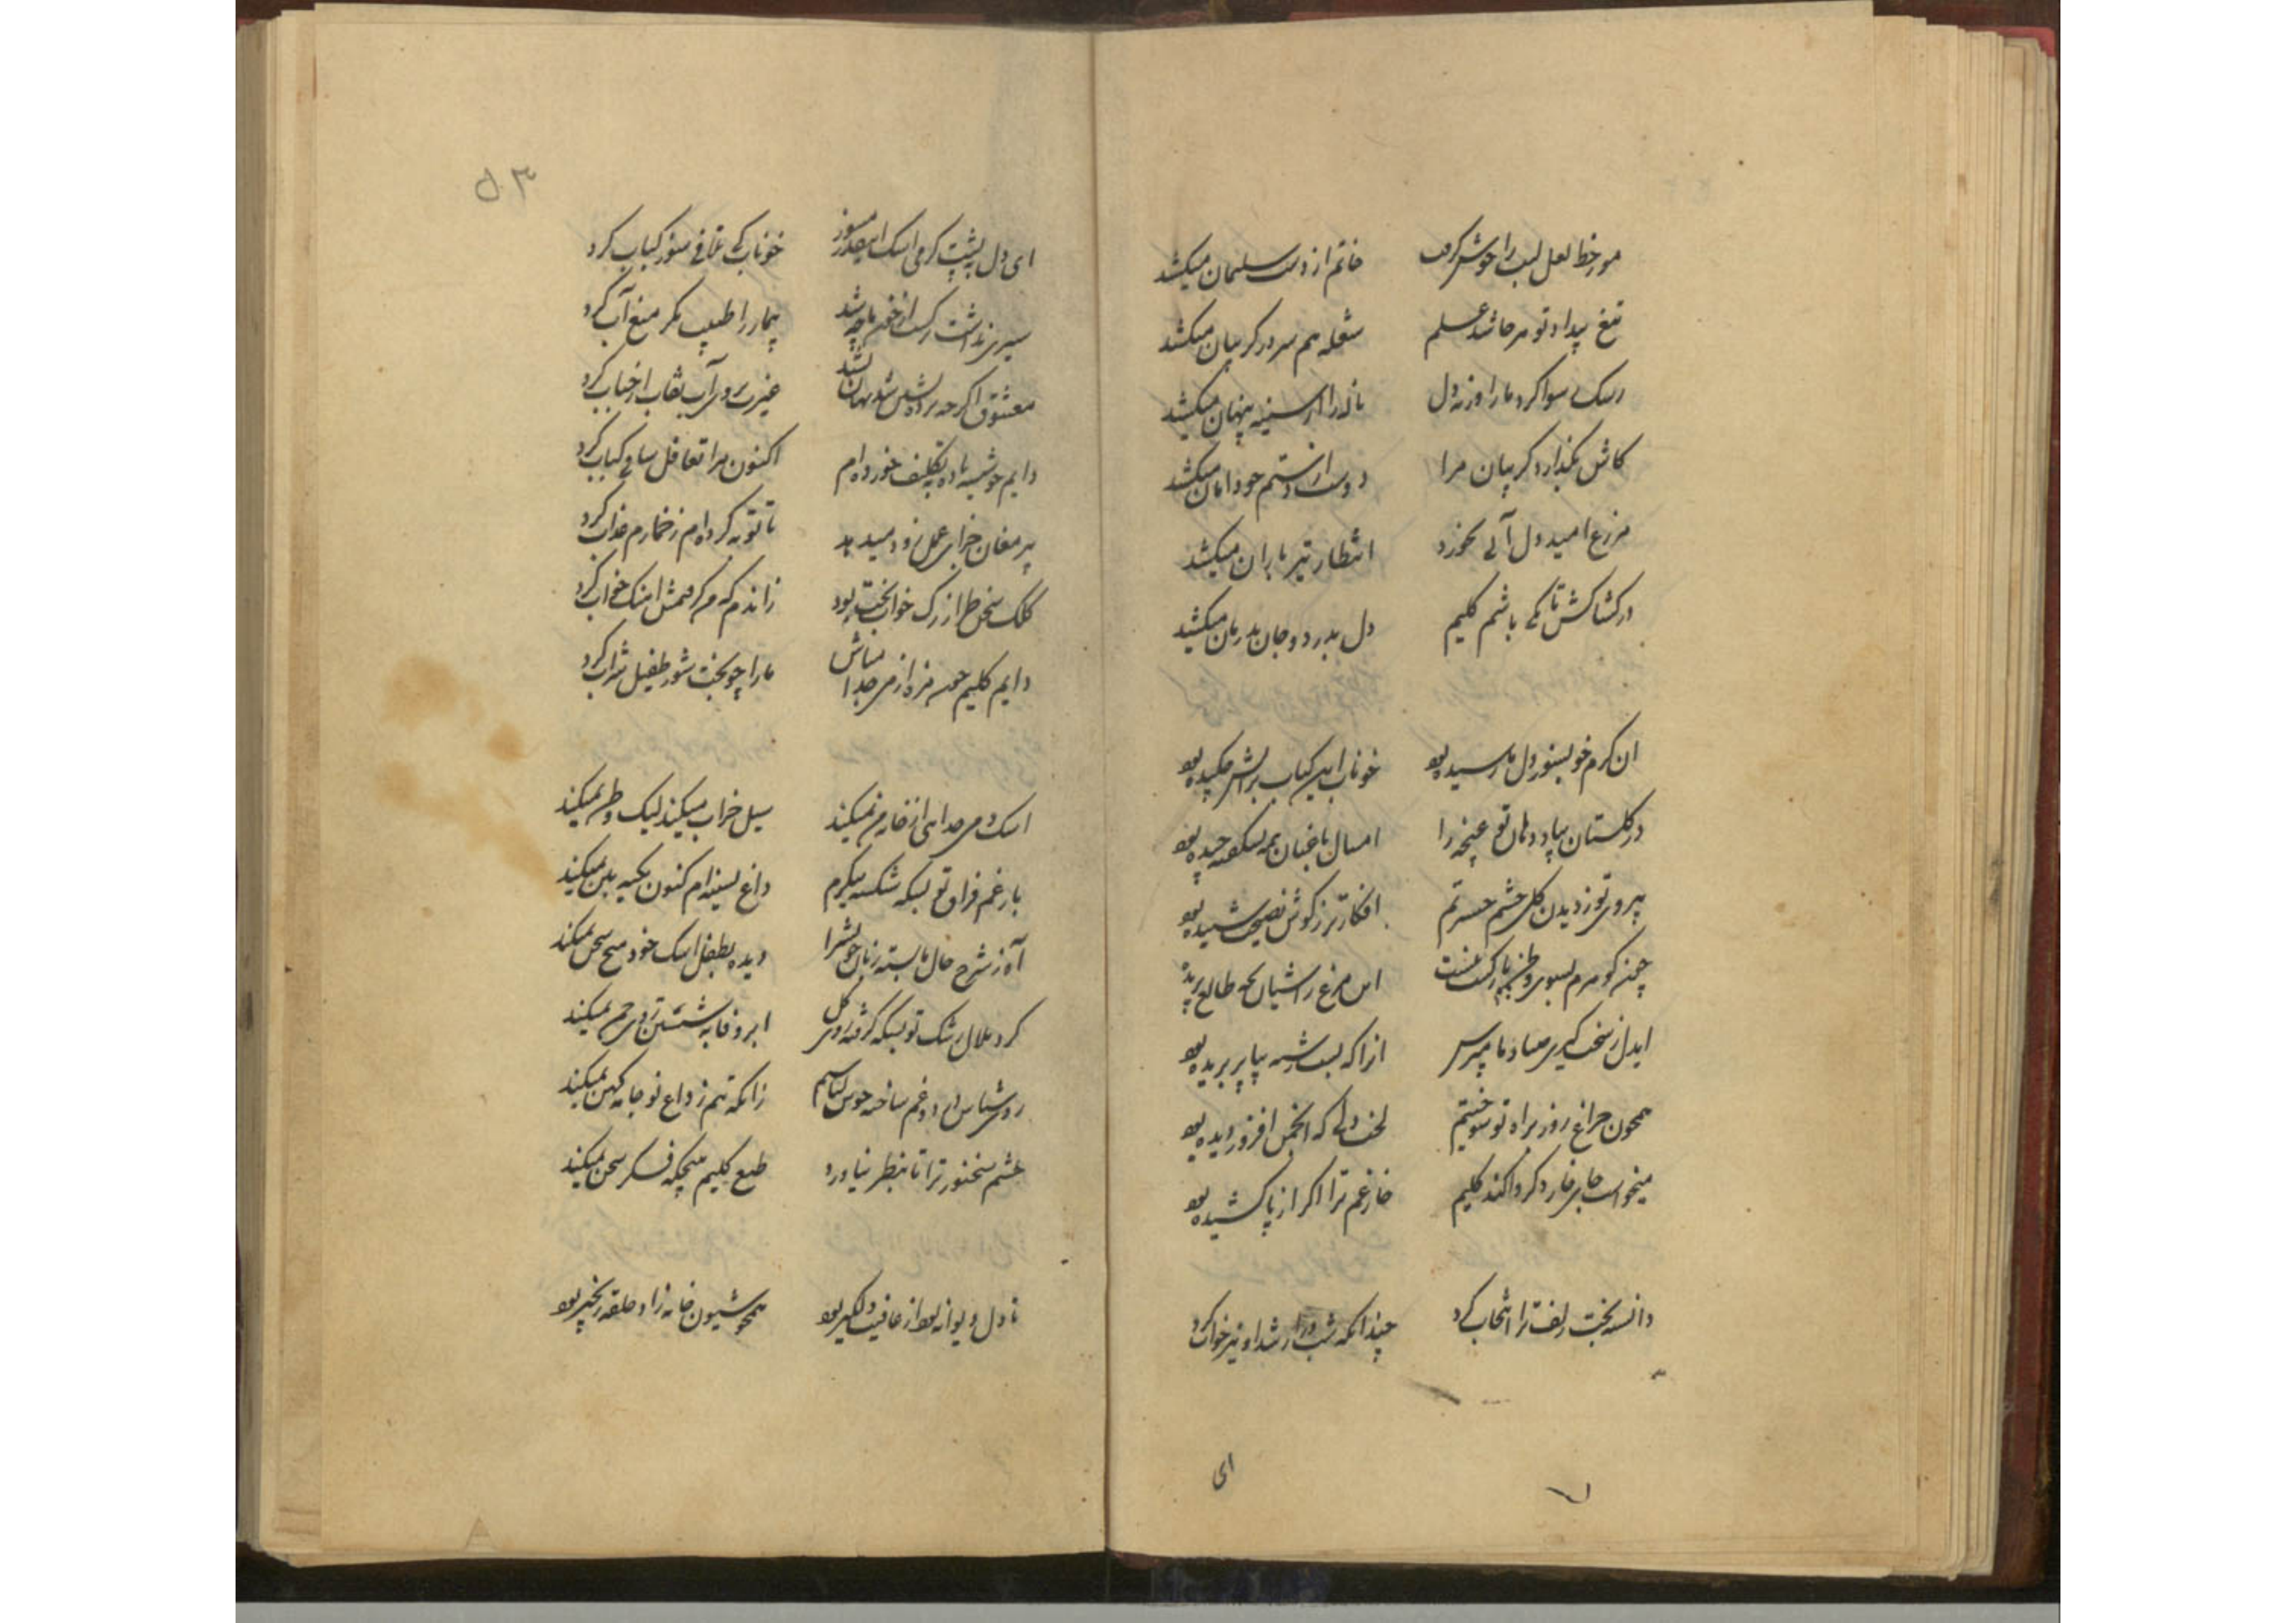 مور خط لعل لبت را خوش گرفت خاتم از دست سلیمان میکشد
تیغ بیداد تو هر جا شد علم شعله هم سر در گریبان میکشد
رشک رسوا کرد ما را ورنه دل ناله را از سینه پنهان میکشد
کاش نگذارد گریبان مرا دست از دستم چو دامان میکشد
مزرع امید دل آبی نخورد انتظار تیر باران میکشد
در کشاکش تا بکی باشم کلیم دل بدرد و جان بدرمان میکشد
ان گرم خو بسوز دل ما رسیده بود خوناب این کباب بر آتش چکیده بود
در گلستان بیاد دهان تو غنچه را امسال باغبان همه نشکفته چیده بود
بیروی تو ز دیدن گل چشم حسرتم افکارتر ز گوش نصیحت شنیده بود
این مرغ ز آشیان بچه طالع پریده
ایدل ز سخت گیری صیاد ما مپرس انرا که بست رشته بپا پر بریده بود
همچون چراغ روز براه تو سوختیم لخت دلی که انجمن افروز دیده بود
میخواست جا بر خار دگر وا کند کلیم خار غم ترا اگر از پا کشیده بود
دانسته بخت زلف ترا انتخاب کرد چندانکه شب دراز شد او نیز خواب کرد
ای
۵۳
ای دل به پشت گرمی اشک اینقدر مسوز خوناب کی تلافی سوز کباب کرد
سیری نداشت زخم بیمار را طبیب مگر منع آب کرد
معشوق اگر چه پرده نشین شد نهان نشد غیرت بروی آب نقاب از حباب کرد
دایم چو شیشه باده بتکلیف خورده ام اکنون مرا تغافل ساقی کباب کرد
پیر مغان جزای عمل زود میدهد تا توبه کرده ام ز خمارم عذاب کرد
کلک سخن طراز رگ خواب بخت بود
دایم کلیم چون مزه از می جدا مباش ما را چو بخت شور طفیل شراب کرد
اشک دمی جدایی از خار مژه نمیکند سیل خراب میکند لیک وطن نمیکند
بار غم فراق تو بسکه شکسته پیکرم داغ بسینه ام کنون تکیه بتن نمیکند
آه ز شرح حال ما بسته زبان خویش را دیده بطفل اشک خود هیچ سخن نمیکند
گرد ملال رشک تو بسکه گرفته روی گل ابر وفا به شستن روی چمن نمیکند
روشناس درد و غم ساخته خویش لباسم زانکه تنم ز داغ نو جامه کهن نمیکند
چشم سخنور ترا تا بنظر نیاورد طبع کلیم هیچگه فکر سخن نمیکند
تا دل دیوانه بود از عافیت دلگیر بود همچو شیون خانه زاد حلقه زنجیر بود